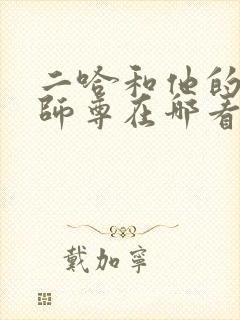 二哈和他的
師尊在哪看
戴加寧